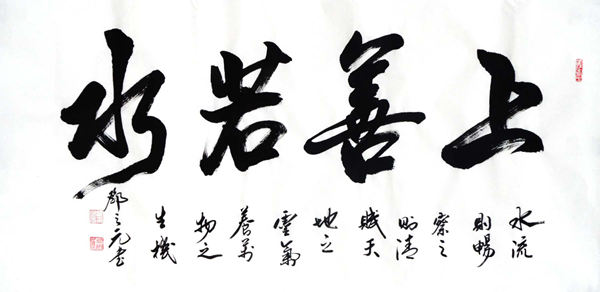 上善若水
水流
則暢
察之
則清
賦天
地之
靈氣
養萬
物之
生機
之元書